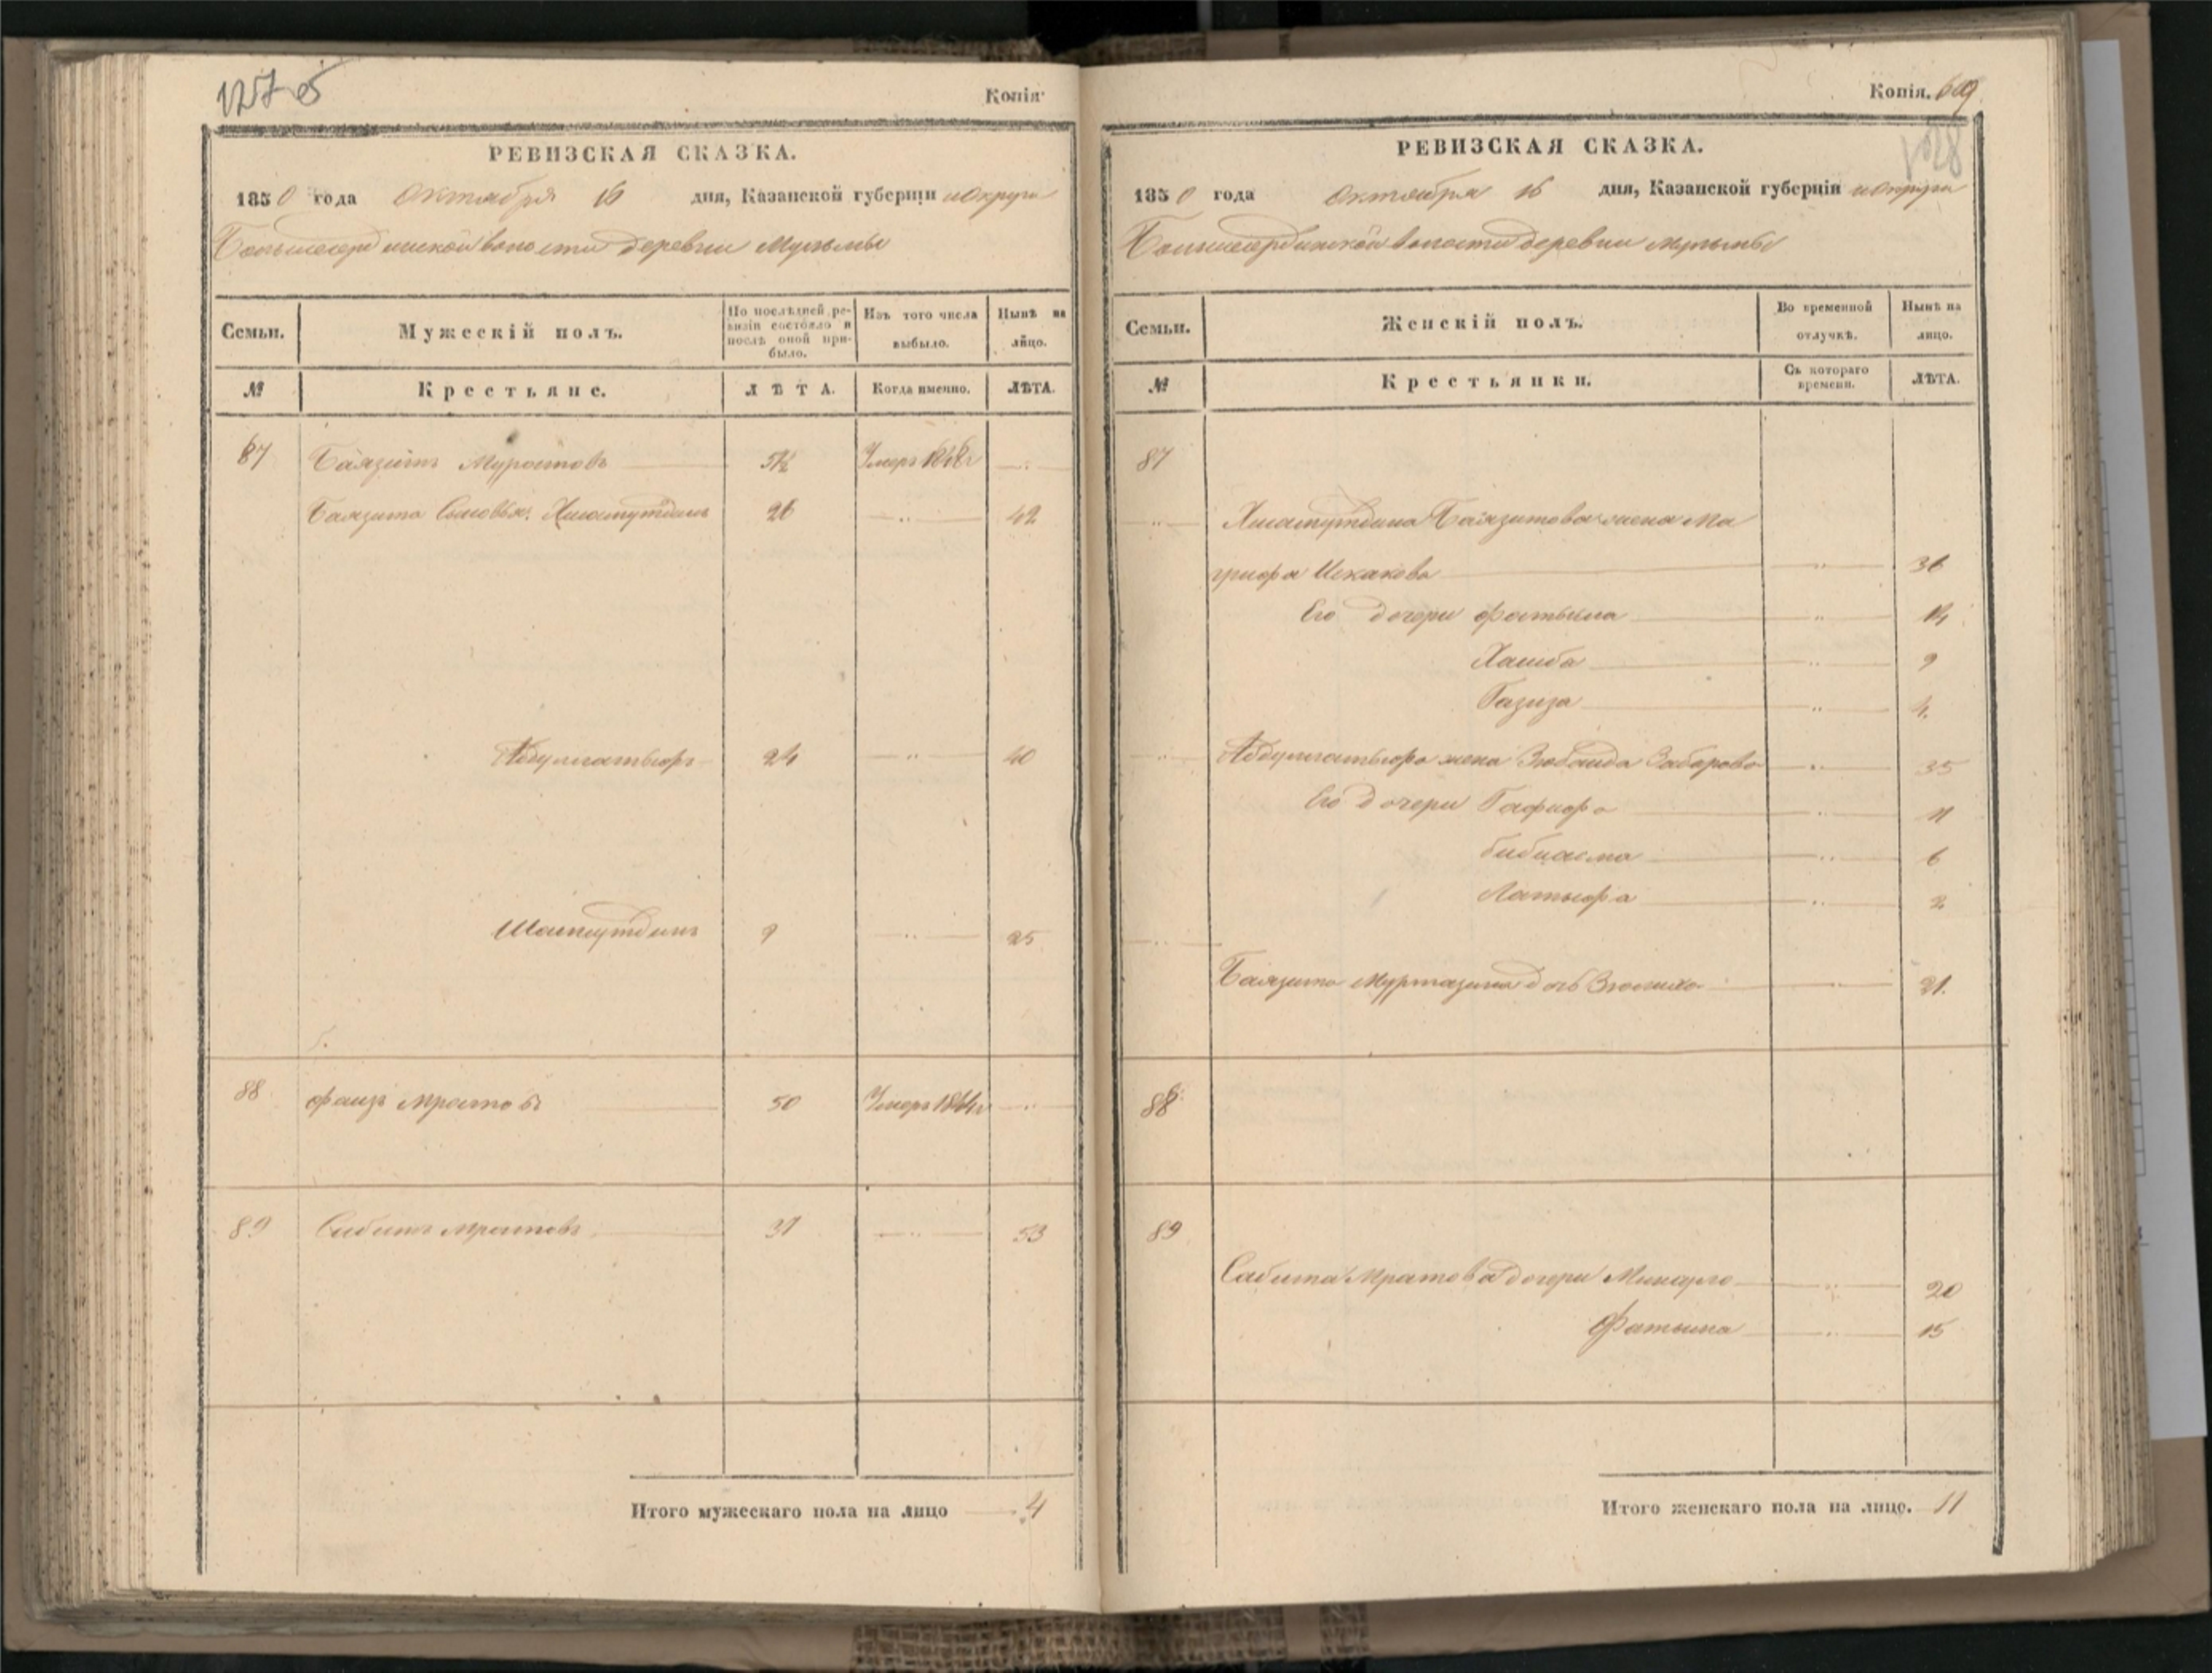 Копія.
РЕВИЗСКАЯ СКАЗКА.
1850 года Октября 16 дня, Казанской губерніи и округа
волости деревни
Семьи. Мужескій полъ. По послѣдней ревизіи состояло и послѣ оной прибыло. Изъ того числа выбыло. Нынѣ на лицо.
№ Крестьяне. ЛѢТА. Когда именно. ЛѢТА.
87 Баязитъ Муратовъ Умеръ
Баязита Сыновья: Хисамутдинъ 26 42
24 40
9 25
88 фаизъ Мратовъ 50 Умеръ 1844г
89 Сабитъ Мратовъ 53
Итого мужескаго пола на лицо 4
Копія.
РЕВИЗСКАЯ СКАЗКА.
1850 года Октября 16 дня, Казанской губерніи и округа
волости деревни
Семьи. Женскій полъ. Во временной отлучкѣ. Нынѣ на лицо.
№ Крестьянки. Съ котораго времени. ЛѢТА.
87
Хисамутдина Баязитова жена Ма
грифа Искакова 36
Его дочери фатыма 14
9
Газиза 4
жена Зюбаида Забарова 35
Его дочери Гафифа 11
бибиасма 6
Латыфа 2
Баязита Муртазина дочь 21.
88
89
Сабита Мратова дочери 20
Фатыма 15
Итого женскаго пола на лицо. 11